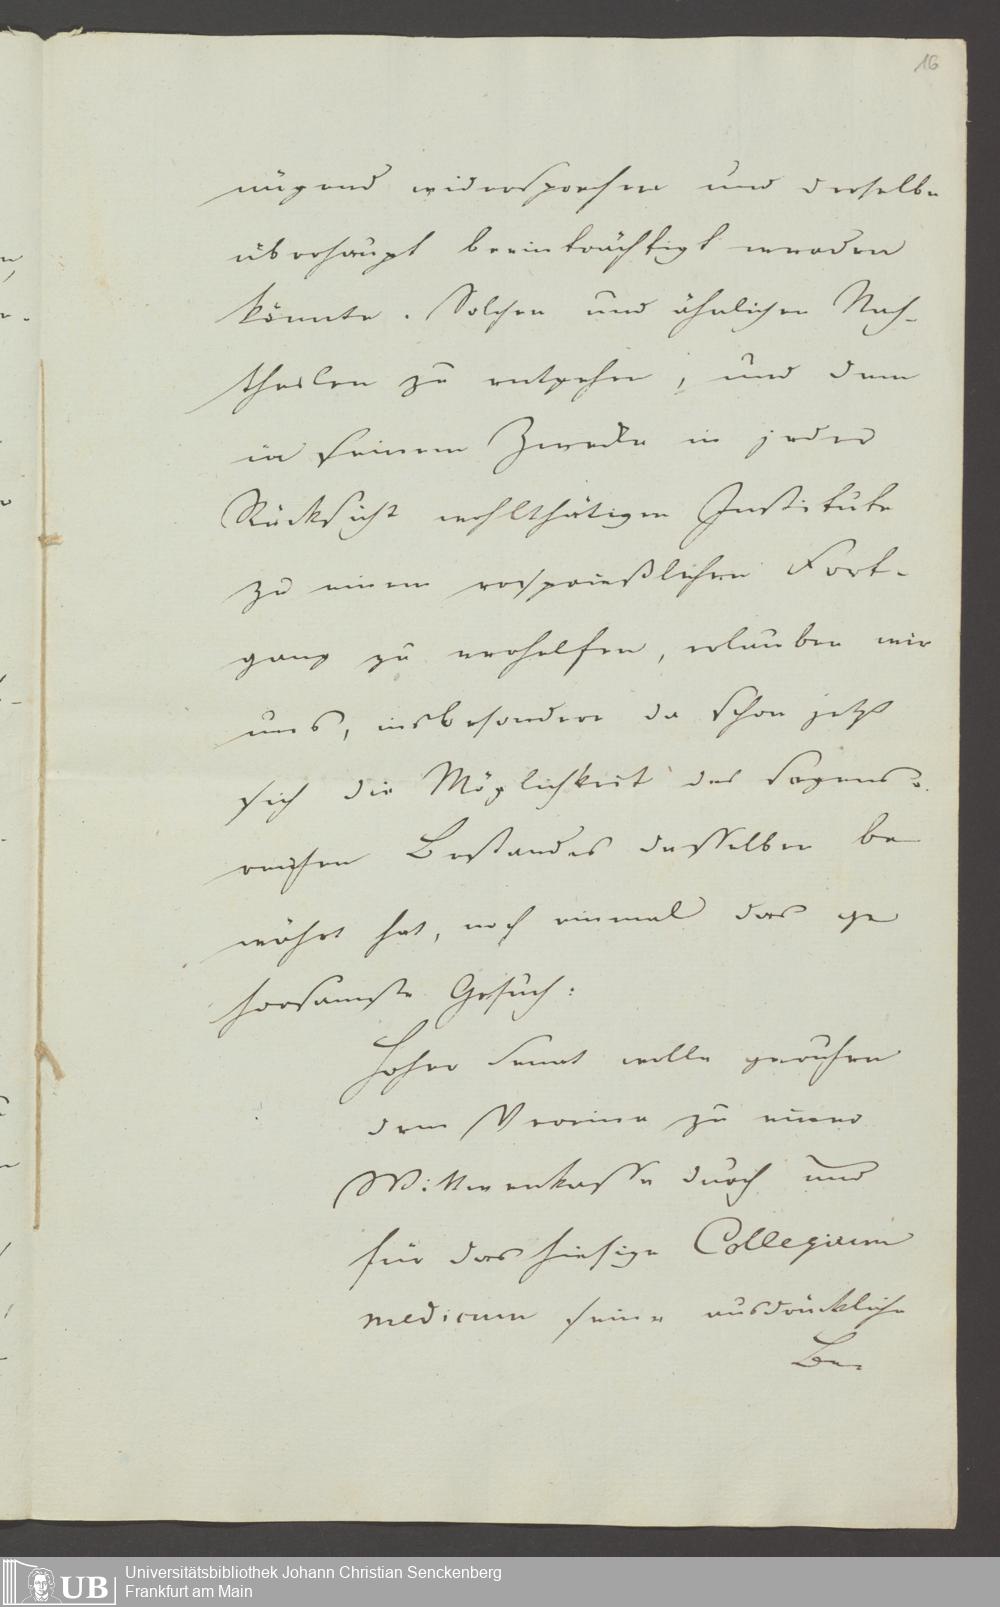 16
nügend widersprochen und derselbe
überhaupt beeinträchtigt werden
könnte. Solchen und ähnlichen Nach-
theilen zu entgehen, und dem
in seinem Zwecke in jeder
Rücksicht wohlthätigen Institute
zu einem ersprießlichen Fort-
gang zu verhelfen, erlauben wir
uns, insbesondere da schon jetzt
sich die Möglichkeit des segens-
reichen Bestandes desselben be
währt hat, noch einmal das ge
horsamste Gesuch:
Hoher Senat wolle geruhen
dem Vereine zu einer
Wittwenkasse durch und
für das hiesige Collegium
medicum seine ausdrückliche
Be-
UB
Universitätsbibliothek Johann Christian Senckenberg
Frankfurt am Main